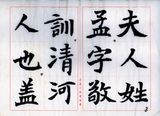 夫人姓
孟字敬
訓清河
人也盖